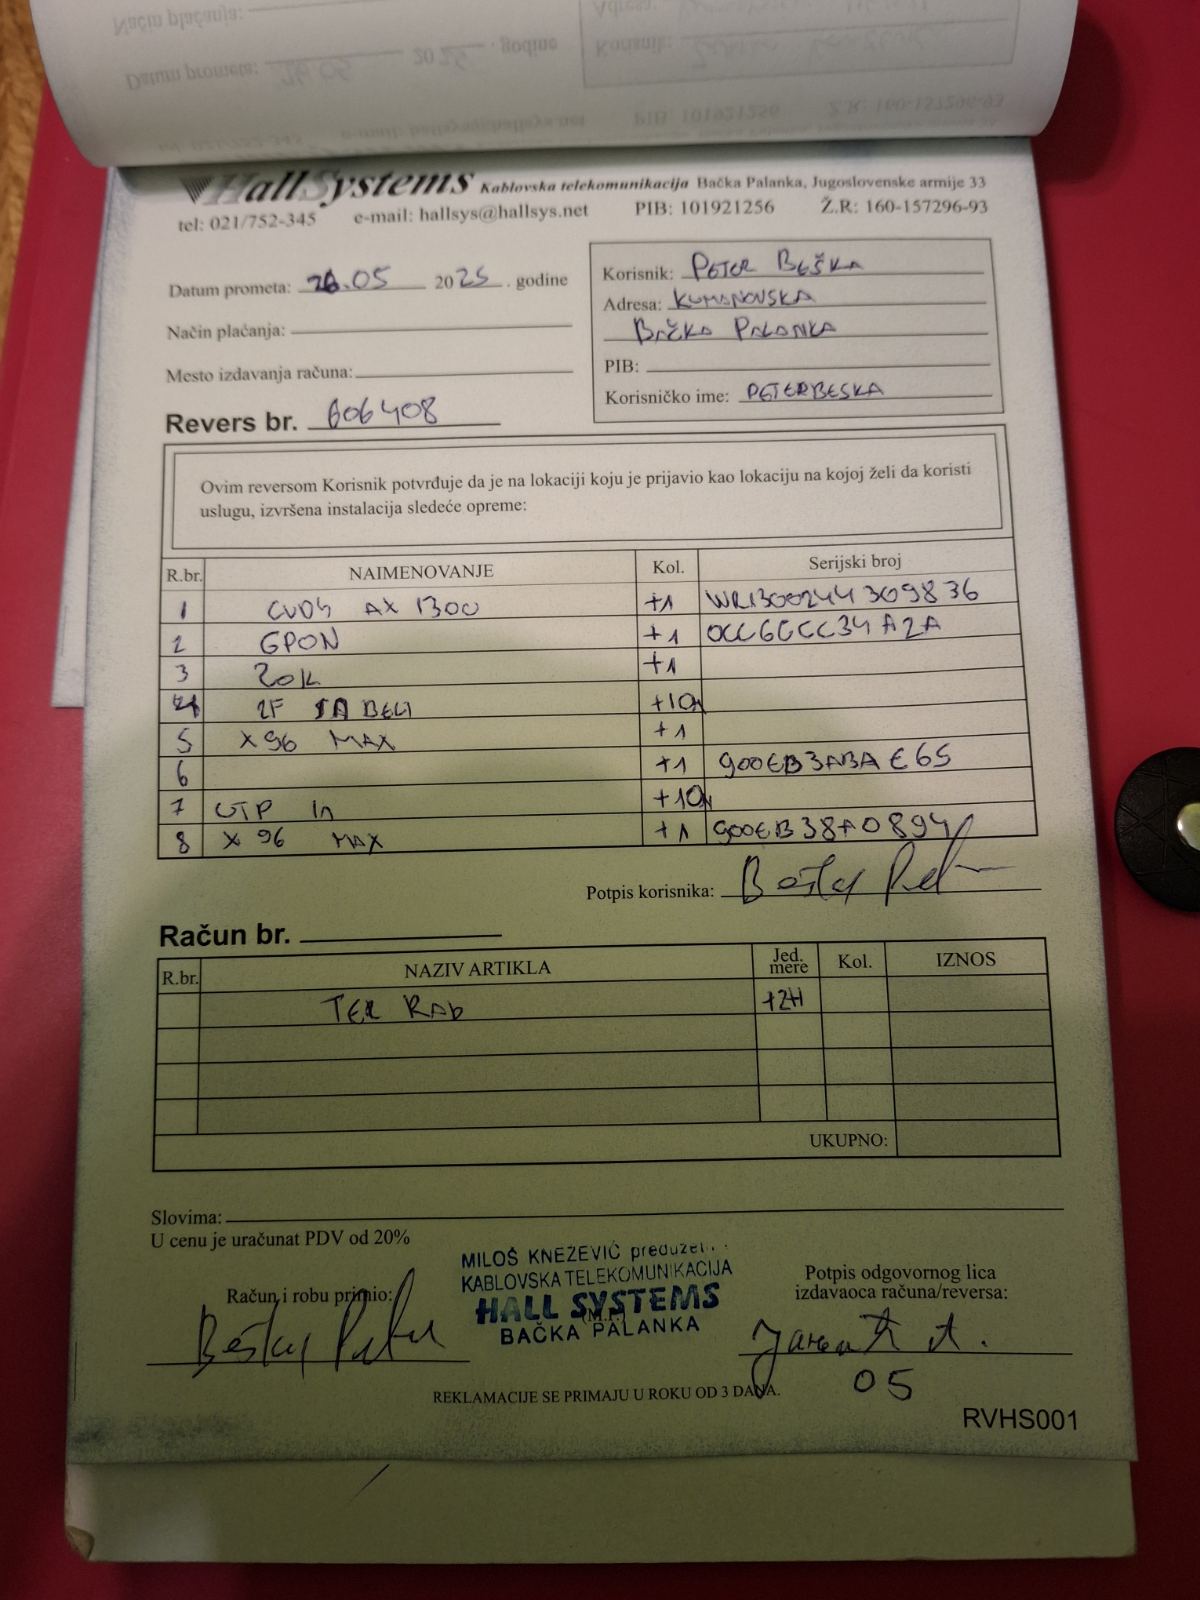 Način plaćanja:
Datum prometa: 26.05 2025. godine
Adresa:
Korisnik:
tel: 021/752-345 e-mail: hallsys@hallsys.net PIB: 101921256 Ž.R: 160-157296-93
HallSystems Kablovska telekomunikacija Bačka Palanka, Jugoslovenske armije 33
tel: 021/752-345 e-mail: hallsys@hallsys.net PIB: 101921256 Ž.R: 160-157296-93
Datum prometa: 26.05 2025. godine
Način plaćanja:
Mesto izdavanja računa:
Korisnik: PETER BEŠKA
Adresa: KUMANOVSKA
BAČKA PALANKA
PIB:
Korisničko ime: PETERBESKA
Revers br. 606408
Ovim reversom Korisnik potvrđuje da je na lokaciji koju je prijavio kao lokaciju na kojoj želi da koristi
uslugu, izvršena instalacija sledeće opreme:
R.br. NAIMENOVANJE Kol. Serijski broj
1 CUDY AX 1300 +1 WR1300244309836
2 GPON +1 OCC6CCC34A2A
3 ZOK +1
4 2F SA BELI +10m
5 X96 MAX +1
6 +1 900EB3ABAE65
7 UTP IN +10m
8 X96 MAX +1 900EB38A0894
Potpis korisnika: Beška
Račun br.
R.br. NAZIV ARTIKLA Jed. mere Kol. IZNOS
TER RAD +2H
UKUPNO:
Slovima:
U cenu je uračunat PDV od 20%
MILOŠ KNEŽEVIĆ preduzet.
KABLOVSKA TELEKOMUNIKACIJA
HALL SYSTEMS
(M.P.)
BAČKA PALANKA
Račun i robu primio:
Beška
Potpis odgovornog lica
izdavaoca računa/reversa:
05
REKLAMACIJE SE PRIMAJU U ROKU OD 3 DANA.
RVHS001